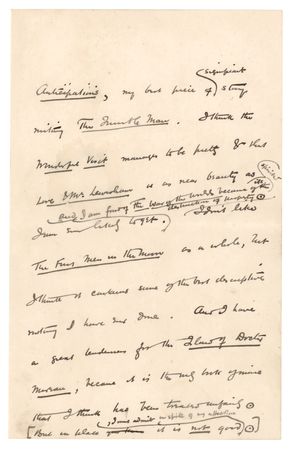 significant
Anticipations, my best piece of story
writing The Invisible Man. I think the
Wonderful Visit manages to be pretty & that
Love & Mr Lewisham is as near beauty as
And I am fond of the War of the Worlds because of the
destruction of property
I am ever likely to get. I don't like
The First Men in the Moon as a whole, but
I think it contains some of the best descriptive
writing I have ever done. And I have
a great tenderness for the Island of Doctor
Moreau, because it is the only book of mine
that I think has been treated unfairly
in spite of my affection
[But in places it is not good]